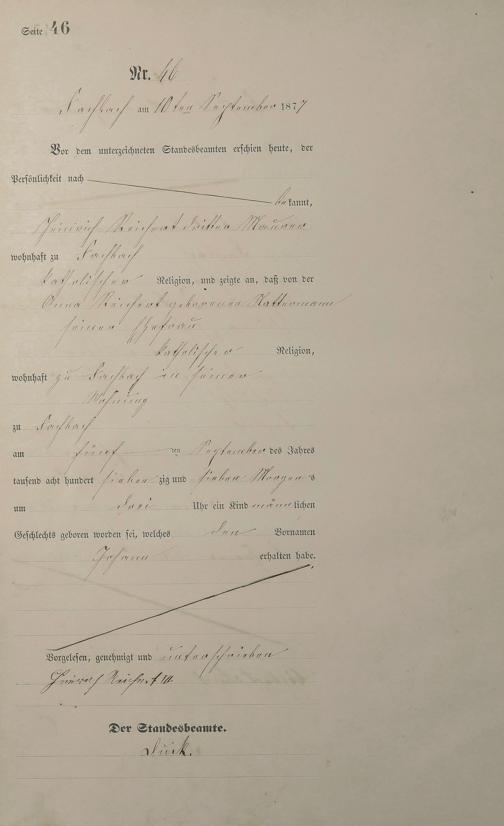 Seite 46
Nr. 46
Fachbach am 10ten September 1877
Vor dem unterzeichneten Standesbeamten erschien heute, der
Persönlichkeit nach
bekannt,
Heinrich Reichert dritter Maurer
wohnhaft zu Fachbach
katholischer Religion, und zeigte an, daß von der
Anna Reichert geborenen Kattermann
seiner Ehefrau
katholischer Religion,
wohnhaft zu Fachbach in seiner
Wohnung
zu Fachbach
am fünften September des Jahres
tausend acht hundert siebenzig und sieben Morgens
um drei Uhr ein Kind männlichen
Geschlechts geboren worden sei, welches den Vornamen
Johann erhalten habe.
Vorgelesen, genehmigt und unterschrieben
Heinrich Reichert III
Der Standesbeamte.